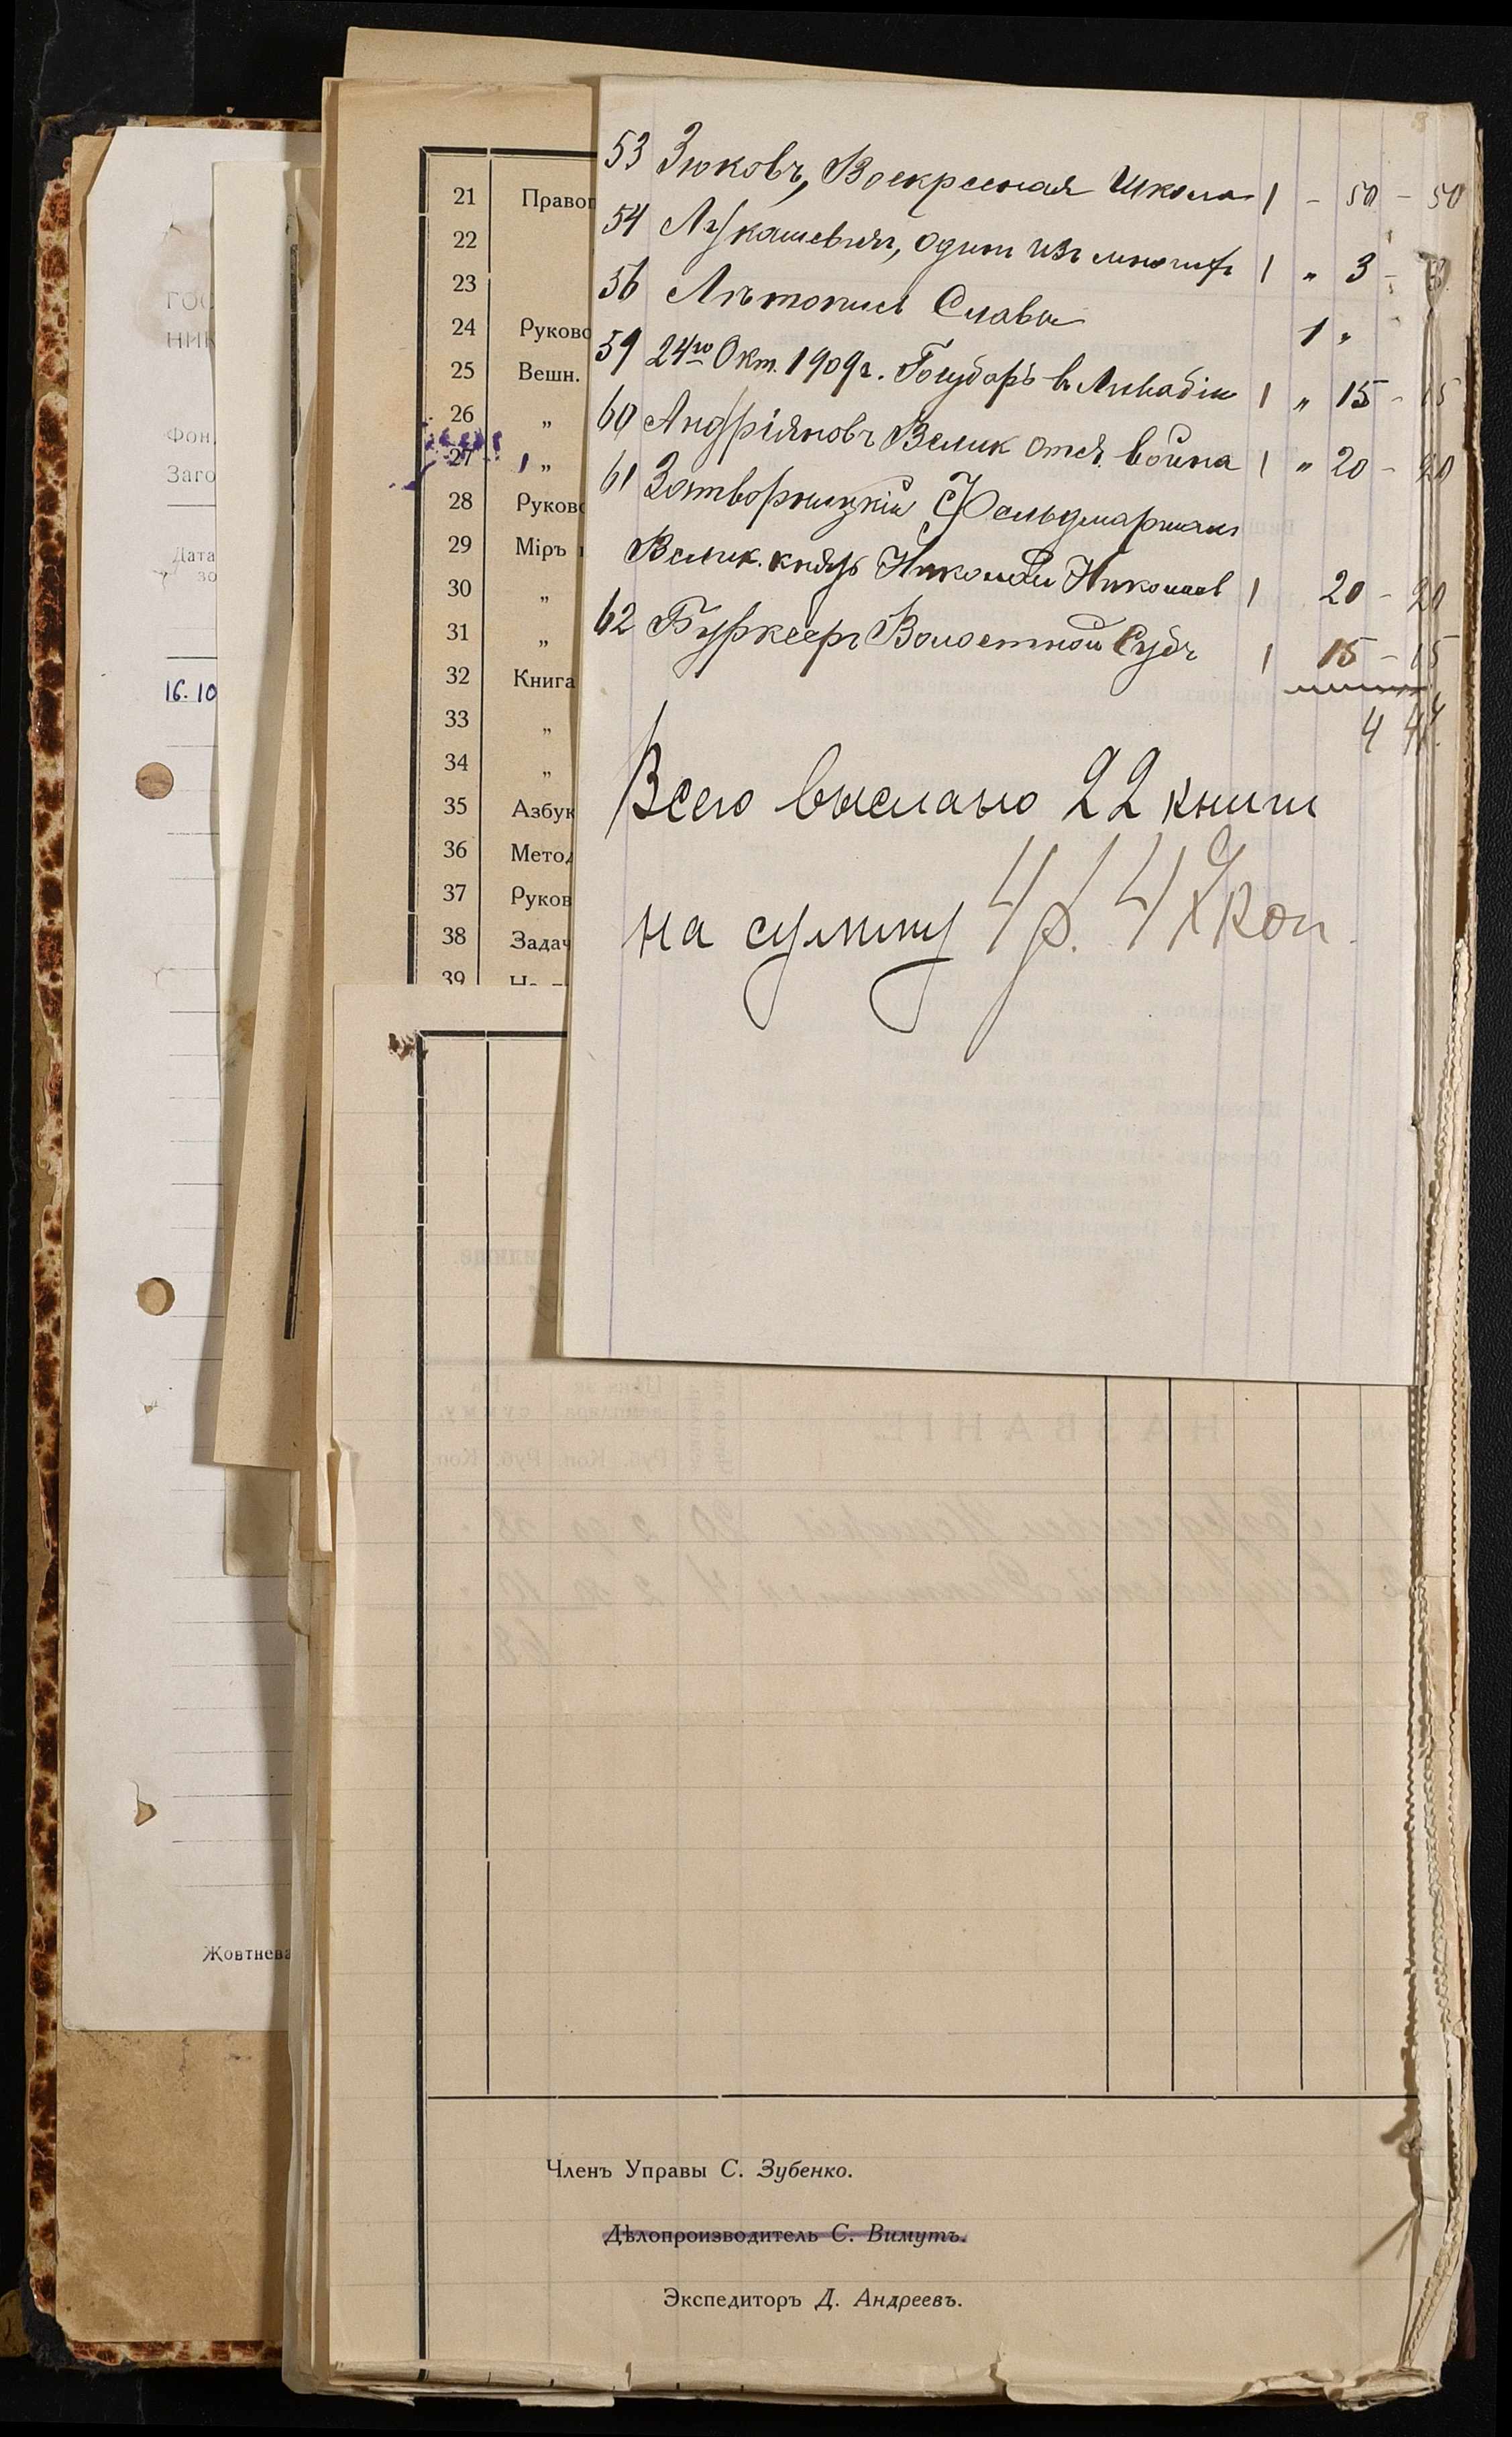 53 Зюковъ, Воскресная Школа 1 - 50 - 50
54 Лукашевичъ, Одинъ изъ многихъ 1 " 3 -
56 Лѣтопись Славы 1 "
59 24го Окт. 1909г. Государь въ Ливадіи 1 " 15 - 15
60 Андріяновъ Велик отеч. война 1 " 20 - 20
61 Затворницкій Фельдмаршалъ
Велик. князь Николай Николаев 1 20 - 20
62 Бурксеръ Волостной Судъ 1 15 - 15
4
Всего выслано 22 книги
на сумму 4 р. коп.
21 Правоп
22
23
24 Руково
25 Вешн.
26 „
27 „
28 Руково
29 Міръ
30 „
31 „
32 Книга
33 „
34 „
35 Азбук
36 Метод
37 Руков
38 Задач
39
ГОС
НИК
Фон
Заго
Дата
зо
16.10
Жовтнева
НАЗВАНІЕ
Членъ Управы С. Зубенко.
Дѣлопроизводитель С. Вимутъ.
Экспедиторъ Д. Андреевъ.